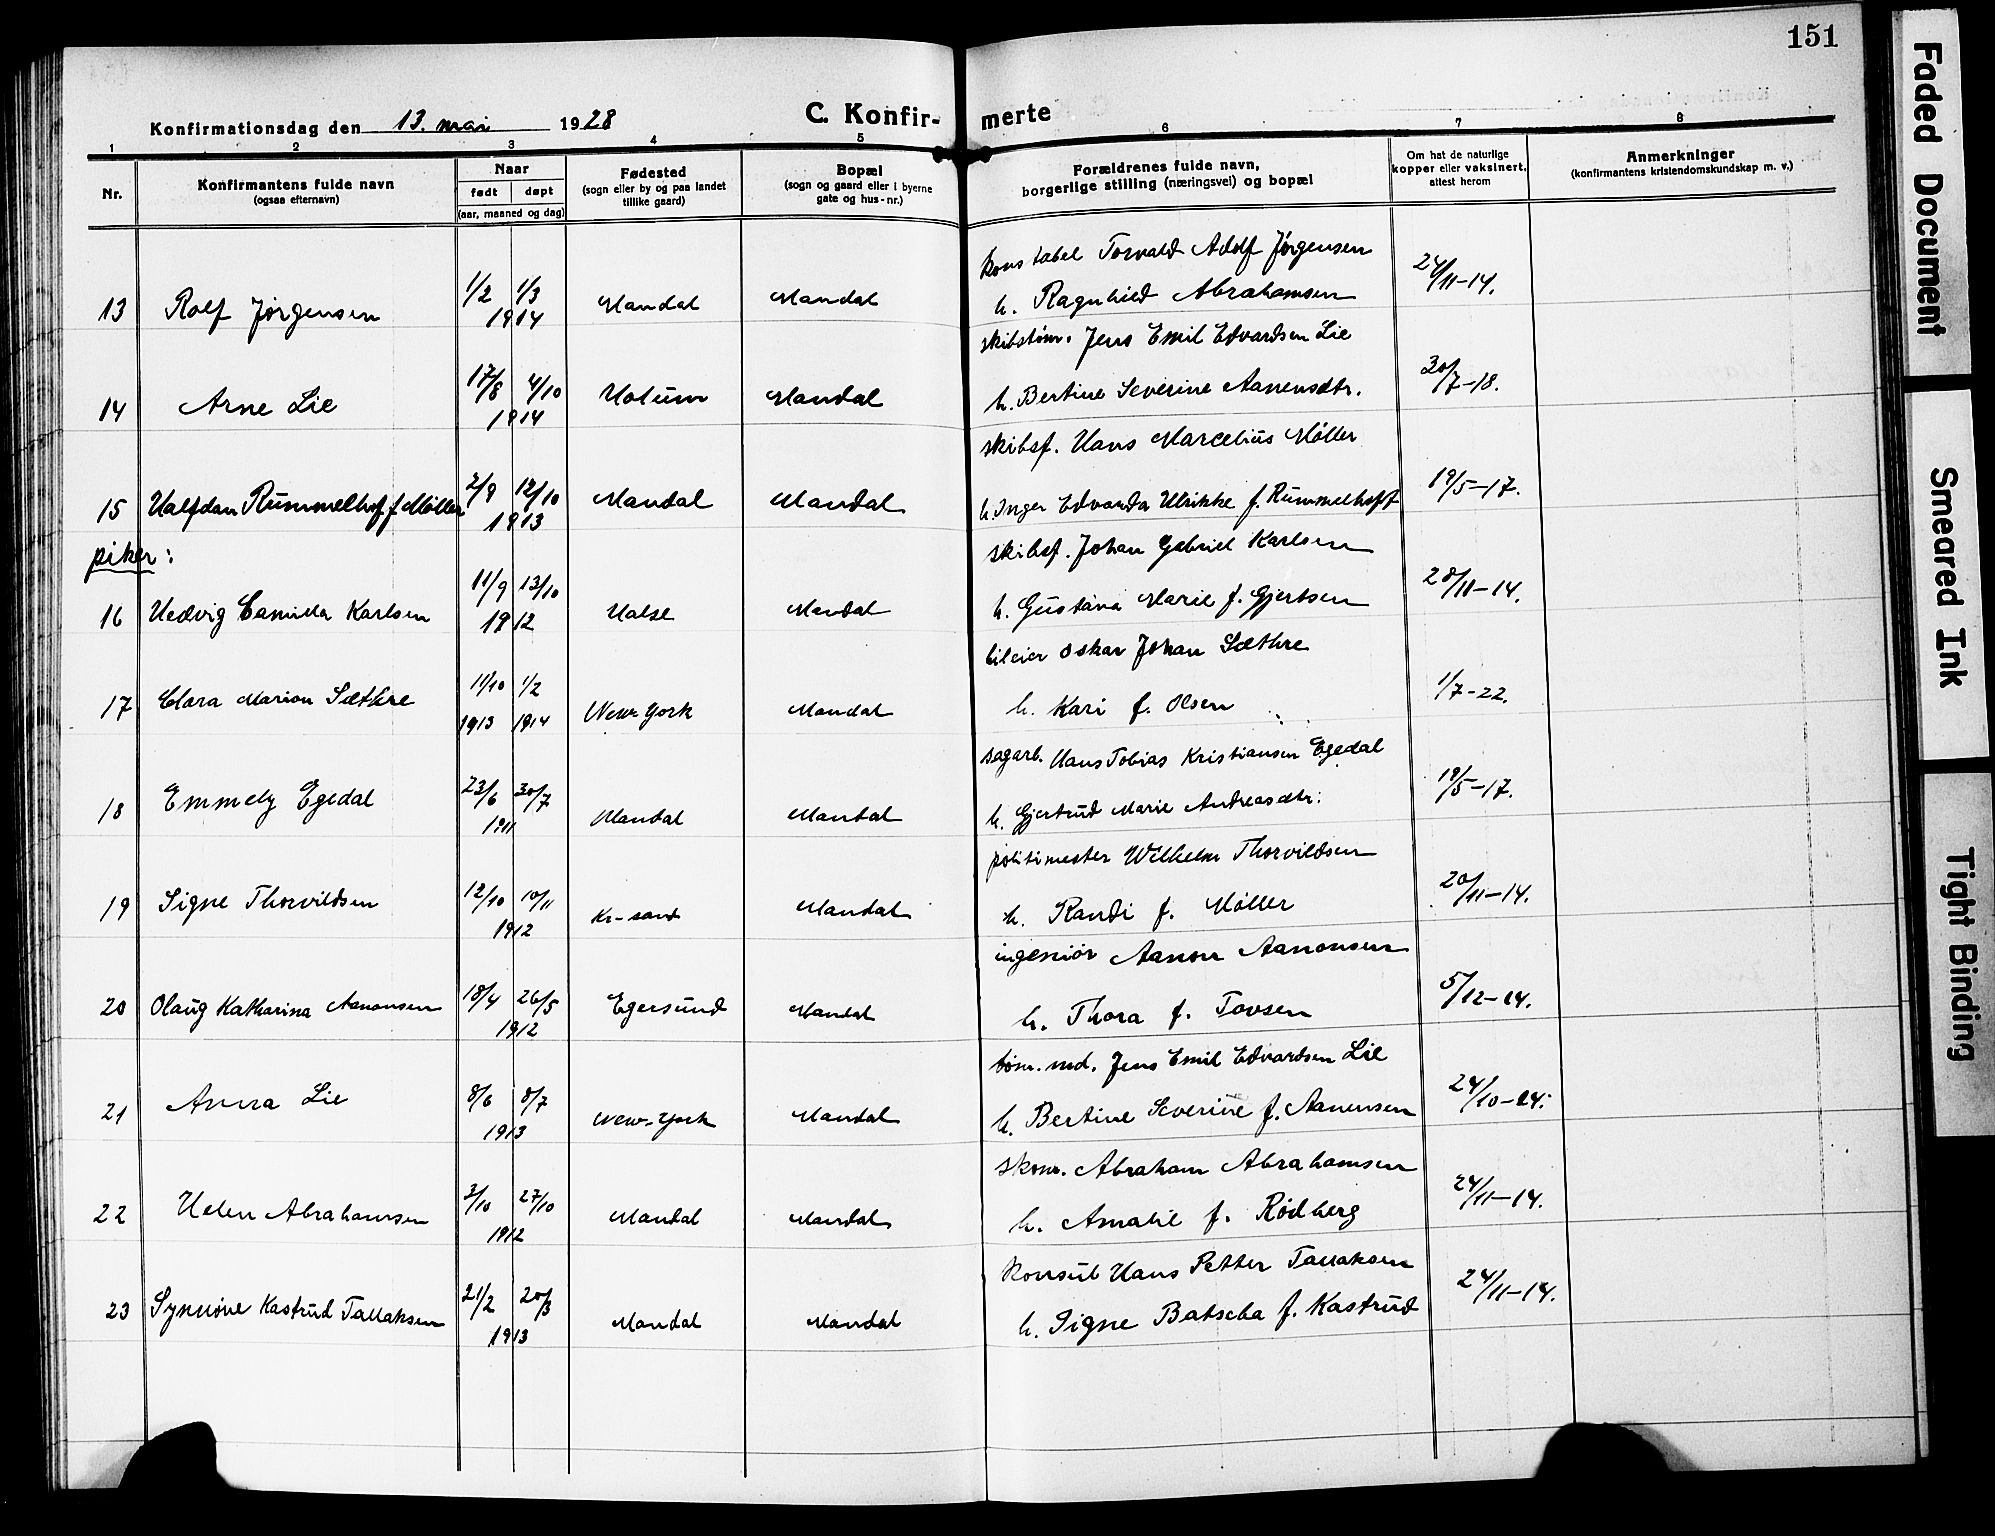 151
Konfirmationsdag den 13. mai 1928
C. Konfirmerte
1 2 3 4 5 6 7 8
Nr.
Konfirmantens fulde navn
(ogsaa efternavn)
Naar
født døpt
(aar, maaned og dag)
Fødested
(sogn eller by og paa landet
tillike gaard)
Bopæl
(sogn og gaard eller i byerne
gate og hus-nr.)
Forældrenes fulde navn,
borgerlige stilling (næringsvei) og bopæl
Om hat de naturlige
kopper eller vaksinert,
attest herom
Anmerkninger
(konfirmantens kristendomskundskap m. v.)
konstabel Torvald Adolf Jørgensen
13 Rolf Jørgensen 1/2 1/3 1914 Mandal Mandal h. Ragnhild Abrahamsen 24/11-14.
skibstøm. Jens Emil Edvardsen Lie
14 Arne Lie 17/8 4/10 1914 Holum Mandal h. Bertine Severine Aanensdtr. 30/7-18.
skibsf. Hans Marcelius Møller
15 Halfdan Rummelhoff Møller 2/9 12/10 1913 Mandal Mandal h. Inger Edvarda Ulrikke f. Rummelhoff 19/5-17.
piker:
skibsf. Johan Gabriel Karlsen
16 Hedvig Camilla Karlsen 11/9 13/10 1912 Halse Mandal h. Gustava Marie f. Gjertsen 28/11-14.
bileier Oskar Johan Sæthre
17 Clara Marion Sæthre 11/10 1913 1/2 1914 New-York Mandal h. Kari f. Olsen 1/7-22.
sagarb. Hans Tobias Kristiansen Egedal
18 Emmely Egedal 23/6 30/7 1911 Mandal Mandal h. Gjertrud Marie Andreasdtr. 19/5-17.
politimester Wilhelm Thorvildsen
19 Signe Thorvildsen 12/10 10/11 1912 Kr-sand Mandal h. Randi f. Møller 20/11-14.
ingeniør Aanon Aanonsen
20 Olaug Katharina Aanonsen 18/4 26/5 1912 Egersund Mandal h. Thora f. Tovsen 5/12-14.
tøm. md. Jens Emil Edvardsen Lie
21 Anna Lie 8/6 8/7 1913 New-York Mandal h. Bertine Severine f. Aanensen 24/10-14.
skom. Abraham Abrahamsen
22 Helen Abrahamsen 3/10 27/10 1912 Mandal Mandal h. Amalie f. Rødberg 24/11-14.
konsul Hans Petter Tallaksen
23 Synnøve Kastrud Tallaksen 21/2 20/3 1913 Mandal Mandal h. Signe Batseba f. Kastrud 24/11-14.
Faded Document
Smeared Ink
Tight Binding